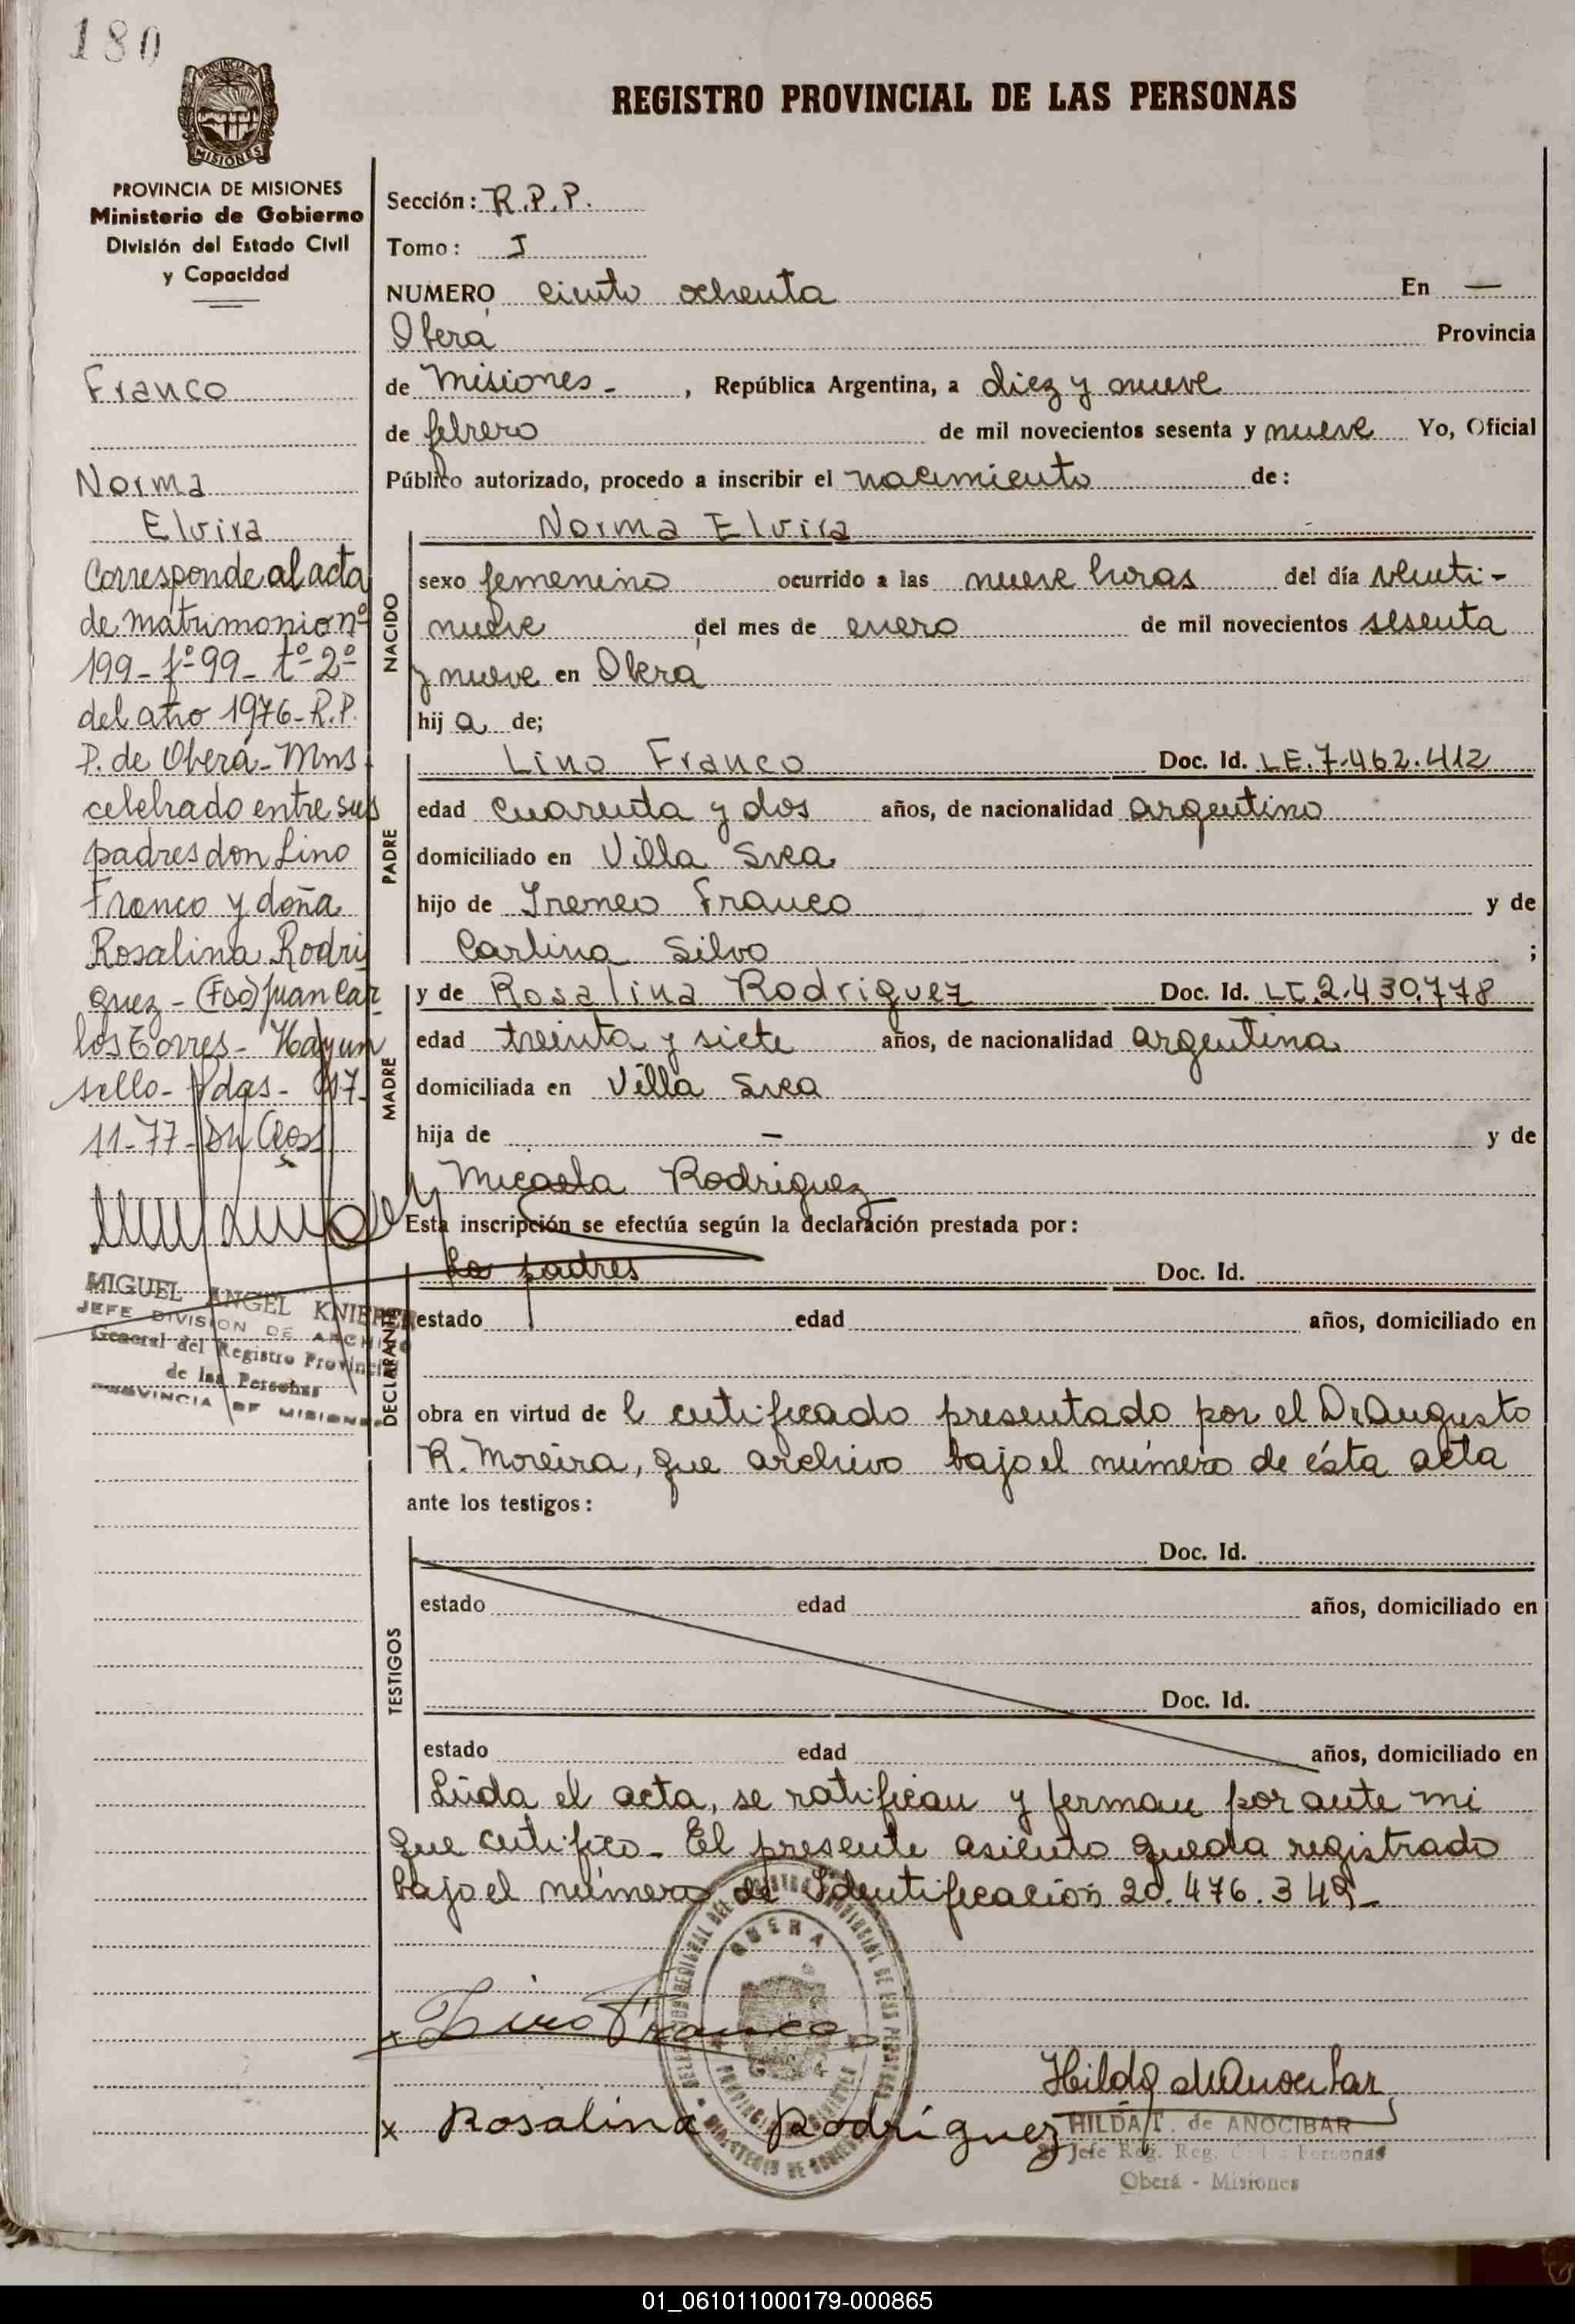 180
PROVINCIA DE
MISIONES
PROVINCIA DE MISIONES
Ministerio de Gobierno
División del Estado Civil
y Capacidad
Franco
Norma
Elvira
Corresponde al acta
de matrimonio nº
199 - fº 99 - tº - 2º
del año 1976 - R.P.
P. de Oberá - Mns
celebrado entre sus
padres don Lino
Franco y doña
Rosalina Rodri
guez - (Fdo) Juan Car
los Torres - Hay un
sello - Pdas - 17
11 - 77 -
MIGUEL ANGEL KNIEPER
JEFE DIVISION DE ARCHIVO
General del Registro Provincial
de las Personas
PROVINCIA DE MISIONES
REGISTRO PROVINCIAL DE LAS PERSONAS
Sección: R.P.P.
Tomo: I
NUMERO ciento ochenta En —
Oberá Provincia
de Misiones - , República Argentina, a diez y nueve
de febrero de mil novecientos sesenta y nueve Yo, Oficial
Público autorizado, procedo a inscribir el nacimiento de:
Norma Elvira
NACIDO
sexo femenino ocurrido a las nueve horas del día venti-
nueve del mes de enero de mil novecientos sesenta
y nueve en Oberá
hij a de;
PADRE
Lino Franco Doc. Id. LE. 7.462.412
edad cuarenta y dos años, de nacionalidad argentino
domiciliado en Villa Svea
hijo de Ireneo Franco y de
Carlina Silvo ;
MADRE
y de Rosalina Rodriguez Doc. Id. LC. 2.430.778
edad treinta y siete años, de nacionalidad argentina
domiciliada en Villa Svea
hija de — y de
Micaela Rodriguez
Esta inscripción se efectúa según la declaración prestada por:
DECLARANTE
Lo padres Doc. Id.
estado edad años, domiciliado en
obra en virtud de l certificado presentado por el Dr Augusto
R. Moreira, que archivo bajo el número de ésta acta
ante los testigos:
TESTIGOS
Doc. Id.
estado edad años, domiciliado en
Doc. Id.
estado edad años, domiciliado en
Leída el acta, se ratifican y ferman por ante mi
que certifico - El presente asiento queda registrado
bajo el número de Identificación 20.476.349 -
x Lino Franco
x Rosalina Rodríguez
OBERA
Hilda de Anocibar
HILDA T. de ANOCIBAR
Jefe Reg. Reg. de las Personas
Oberá - Misiones
01_061011000179-000865